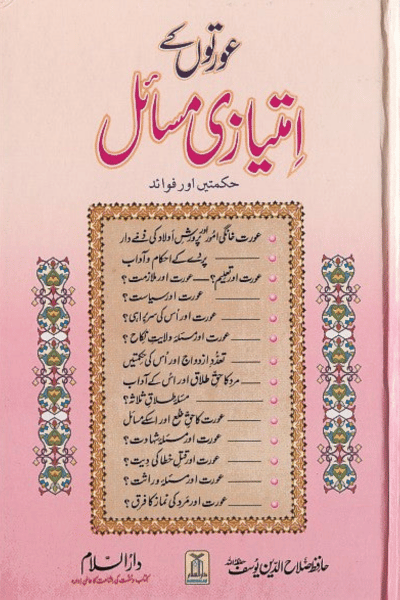 عورتوں کے
اِمتیازی مسائل
حکمتیں اور فوائد
عورت خانگی امور اور پرورش اولاد کی ذمے دار
پردے کے احکام و آداب
عورت اور تعلیم؟ — عورت اور ملازمت؟
عورت اور سیاست؟
عورت اور اُس کی سربراہی؟
عورت اور مسئلہ ولایتِ نکاح؟
تعددِ ازدواج اور اُس کی حکمتیں
مرد کا حقِ طلاق اور اُس کے آداب
مسئلہ طلاقِ ثلاثہ؟
عورت کا حقِ خلع اور اسکے مسائل
عورت اور مسئلہ شہادت؟
عورت اور قتلِ خطا کی دیت؟
عورت اور مسئلہ وراثت؟
عورت اور مرد کی نماز کا فرق؟
حافظ صلاح الدین یوسف حفظہ اللہ
دارالسلام
کتاب و سنت کی اشاعت کا عالمی ادارہ